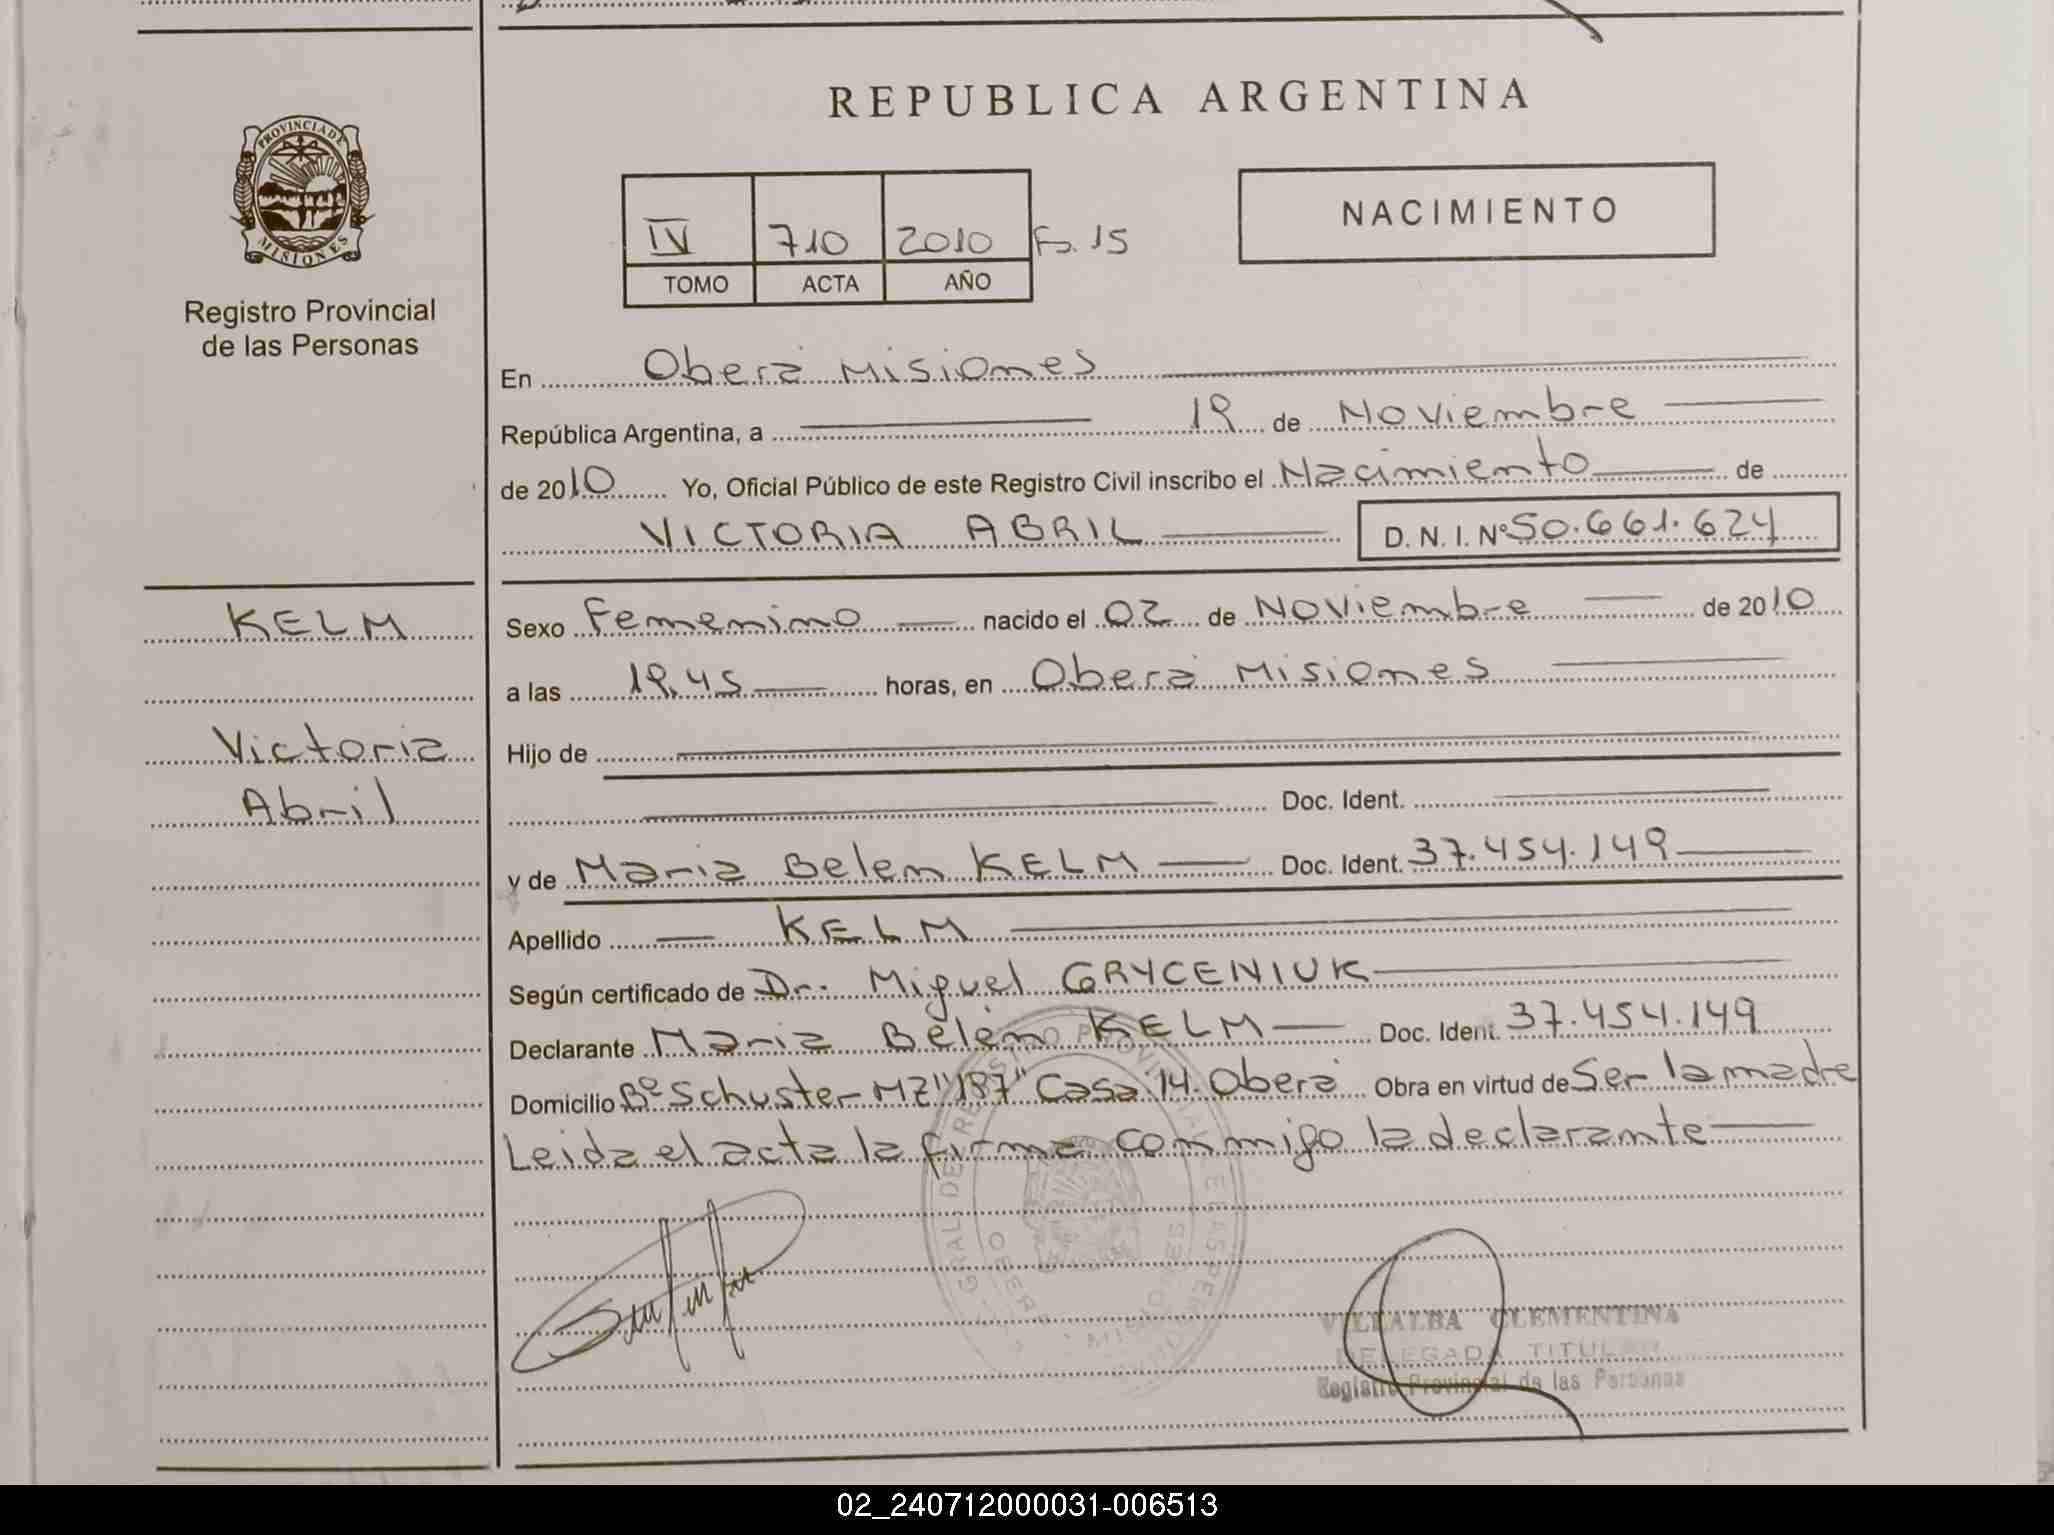 REPUBLICA ARGENTINA
PROVINCIA DE
MISIONES
Registro Provincial
de las Personas
IV 710 2010 Fs. 15
TOMO ACTA AÑO
NACIMIENTO
En Oberá Misiones
República Argentina, a 19 de Noviembre
de 2010 Yo, Oficial Público de este Registro Civil inscribo el Nacimiento de
VICTORIA ABRIL D. N. I. Nº 50.661.624
KELM
Victoria
Abril
Sexo Femenino nacido el 02 de Noviembre de 2010
a las 19,45 horas, en Oberá Misiones
Hijo de
Doc. Ident.
y de Maria Belen KELM Doc. Ident. 37.454.149
Apellido KELM
Según certificado de Dr. Miguel GRYCENIUK
Declarante Maria Belén KELM Doc. Ident. 37.454.149
Domicilio Bº Schuster-MZ"187" Casa 14. Oberá Obra en virtud de Ser la madre
Leida el acta la firma conmigo la declarante
VILLALBA CLEMENTINA
DELEGADA TITULAR
Registro Provincial de las Personas
02_240712000031-006513